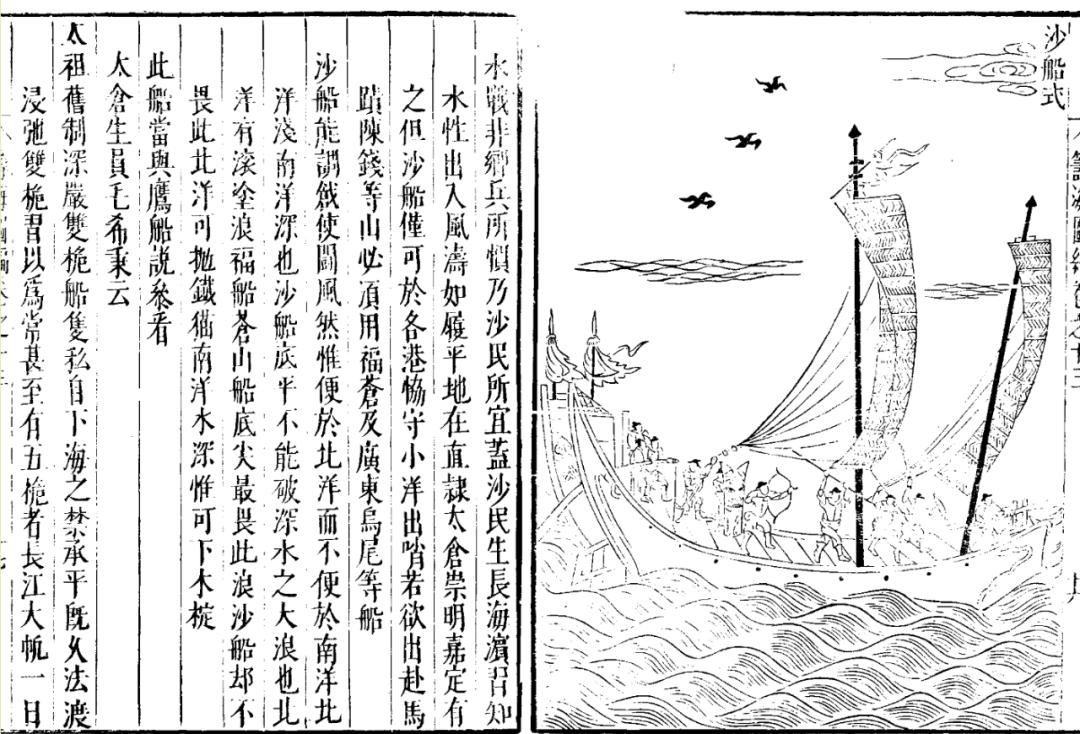 沙船式
籌海圖編卷之十三
水戰非鄉兵所慣乃沙民所宜蓋沙民生長海濱習知
水性出入風濤如履平地在直隷太倉崇明嘉定有
之但沙船僅可於各港協守小洋出哨若欲出赴馬
蹟陳錢等山必須用福蒼及廣東烏尾等船
沙船能調戧使鬬風然惟便於北洋而不便於南洋北
洋淺南洋深也沙船底平不能破深水之大浪也北
洋有滚塗浪福船蒼山船底尖最畏此浪沙船却不
畏此北洋可抛鐵猫南洋水深惟可下木椗
此船當與鷹船說叅看
太倉生員毛希秉云
太祖舊制深嚴雙桅船隻私自下海之禁承平既久法漸
浸弛雙桅習以爲常甚至有五桅者長江大帆一日